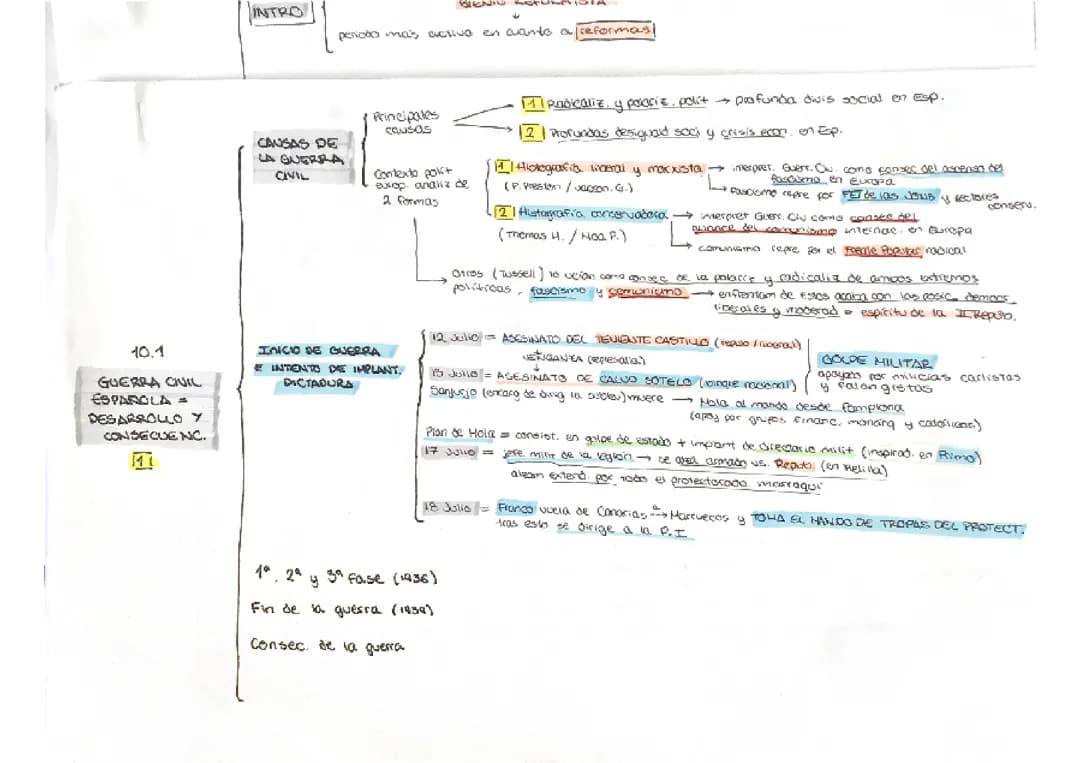 BIENIO REFORMISTA
INTRO
periodo mas activo en cuanto a reformas
Principales causas
1 Radicaliz. y polariz. polit → profunda divis social en Esp.
2 Profundas desiguald soci y crisis econ. en Esp.
CAUSAS DE
LA GUERRA
CIVIL
Contexto polit
europ. analiz de
2 formas
1 Histografia liberal y marxista → interpret. Guerr. Civ. como consec del ascenso del
fascismo en Europa
(P. Preston / Jacson. G.)
→ Fascismo repre por FET de las JONS y sectores
conserv.
2 Histografia conservadora → interpret Guerr. Civ como consec del
avance del comunismo internac. en Europa
(Thomas H. / Moa P.)
→ comunismo repre por el Frente Popular radical
Otros (Tussell) lo veian como consec de la polariz y radicaliz de ambos extremos
politicos, fascismo y comunismo → enfrentam de estos acaba con las posic democ
liberales y moderad = espiritu de la II Repub.
10.1
GUERRA CIVIL
ESPAÑOLA =
DESARROLLO Y
CONSECUENC.
11
INICIO DE GUERRA
E INTENTO DE IMPLANT.
DICTADURA
12 Julio = ASESINATO DEL TENIENTE CASTILLO
VENGANZA (represalia)
ASESINATO DE CALVO SOTELO
GOLPE MILITAR
apoyado por milicias carlistas
y falangistas
Sanjurjo (encarg de dirig la sublev) muere → Mola al mando desde Pamplona
(apoy por grupos financ. monarq y catolicos)
Plan de Mola = consist. en golpe de estado + implant de directorio milit (inspirad. en Primo)
17 Julio = jefe milit de la legion → se alza armado vs. Repub. (en Melilla)
alzam extend. por todo el protectorado marroqui
18 Julio = Franco vuela de Canarias → Marruecos y TOMA EL MANDO DE TROPAS DEL PROTECT.
tras esto se dirige a la P.I
1ª, 2ª y 3ª Fase (1936)
Fin de la guerra (1939)
Consec. de la guerra